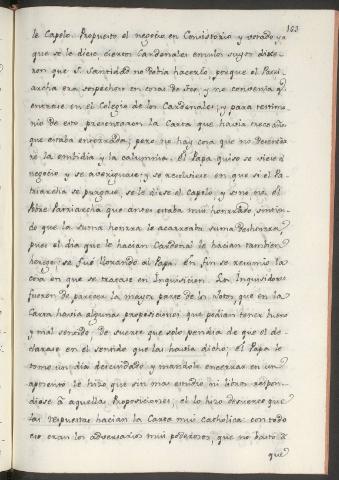 163
le Capelo. Propuesto el negocio en Consistorio y votado ya
que se le diese, ciertos Cardenales emulos suyos dixe-
ron que S. Santidad no podia hacerlo, porque el Patri-
archa era sospechoso en cosas de fee, y no convenia q̃
entrase en el Colegio de los Cardenales; y para testimo-
nio de esto presentaron la Carta que havia trece años
que estaba enterrada; pero no hay cosa que no desentier-
re la embidia y la calumnia. El Papa quiso se viese el
negocio y se averiguase; y se resolviese en que si el Pa-
triarcha se purgase, se le diese el Capelo, y si no no. el
Pobre Patriarcha que antes estaba mui honrrado, sintien-
do que la suma honrra le acarreaba suma Deshonrra,
pues el dia que le hacian Cardenal le hacian tambien
herege se fue llorando al Papa. En fin se resumio la
cosa en que se tratase en Inquisicion. Los Inquisidores
fueron de parecer la mayor parte de los Votos, que en la
Carta havia algunas proposiciones, que podian tener bueno
y mal sentido, de suerte que solo pendia de que el de-
clarase en el sentido que las havia dicho. el Papa le
tomo un dia descuidado y mandole encerrar en un
aposento le hizo que sin mas estudio ni libros respon-
diese à aquellas Proposiciones, el lo hizo de suerte que
las respuestas hacian la Carta mui catholica: con todo
eso eran los adversarios mui poderosos, que no bastò à
que